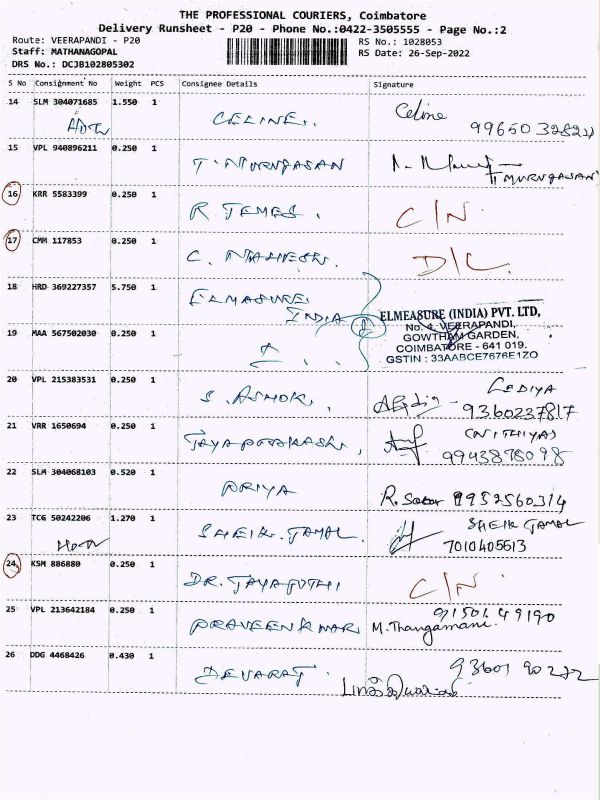 THE PROFESSIONAL COURIERS, Coimbatore
Delivery Runsheet - P20 - Phone No.:0422-3505555 - Page No.:2
Route: VEERAPANDI - P20 RS No.: 1028053
Staff: MATHANAGOPAL RS Date: 26-Sep-2022
DRS No.: DCJB102805302
S No Consignment No Weight PCS Consignee Details Signature
14 SLM 304071685 1.550 1 CELINE. Celine
15 VPL 940896211 0.250 1 T. MURUGASAN
T MURUGASAN
16 KRR 5583399 0.250 1 R. JEMES. C/N
17 CMM 117853 0.250 1 C. MAHESH. D/L
18 HRD 369227357 5.750 1 ELMASURE
INDIA
ELMEASURE (INDIA) PVT. LTD,
No. 4, VEERAPANDI,
19 MAA 567502030 0.250 1
GOWTHAM GARDEN,
COIMBATORE - 641 019.
GSTIN : 33AABCE7676E1ZO
20 VPL 215383531 0.250 1 S. ASHOK. LEDIYA
9360237817
21 VRR 1650694 0.250 1 JAYAPRAKASH. (NITHIYA)
9943878098
22 SLM 304068103 0.520 1 PRIYA 9952560314
23 TCG 50242206 1.270 1 SHEIK. JAMAL SHEIK JAMAL
7010405513
24 KSM 886880 0.250 1 DR. JAYAJOTHI C/N
25 VPL 213642184 0.250 1 PRAVEENKUMAR M. Thangamani
91501 49190
26 DDG 4468426 0.430 1 DEVARAJ